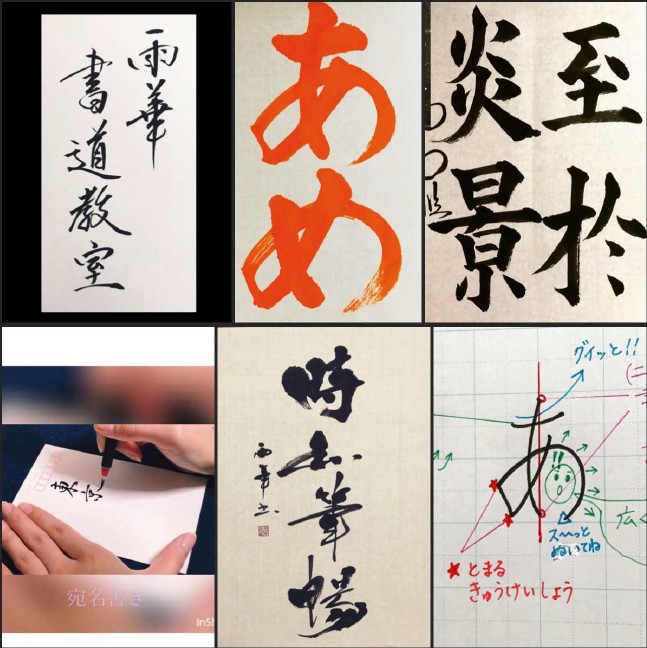 雨華
書道教室
あめ
至於
炎景
東京
宛名書き
InSh
時和筆暢
雨華書
グイッと!!
あ
!!
スーッと
ぬいてね
広く
★とまる
きゅうけいしょう